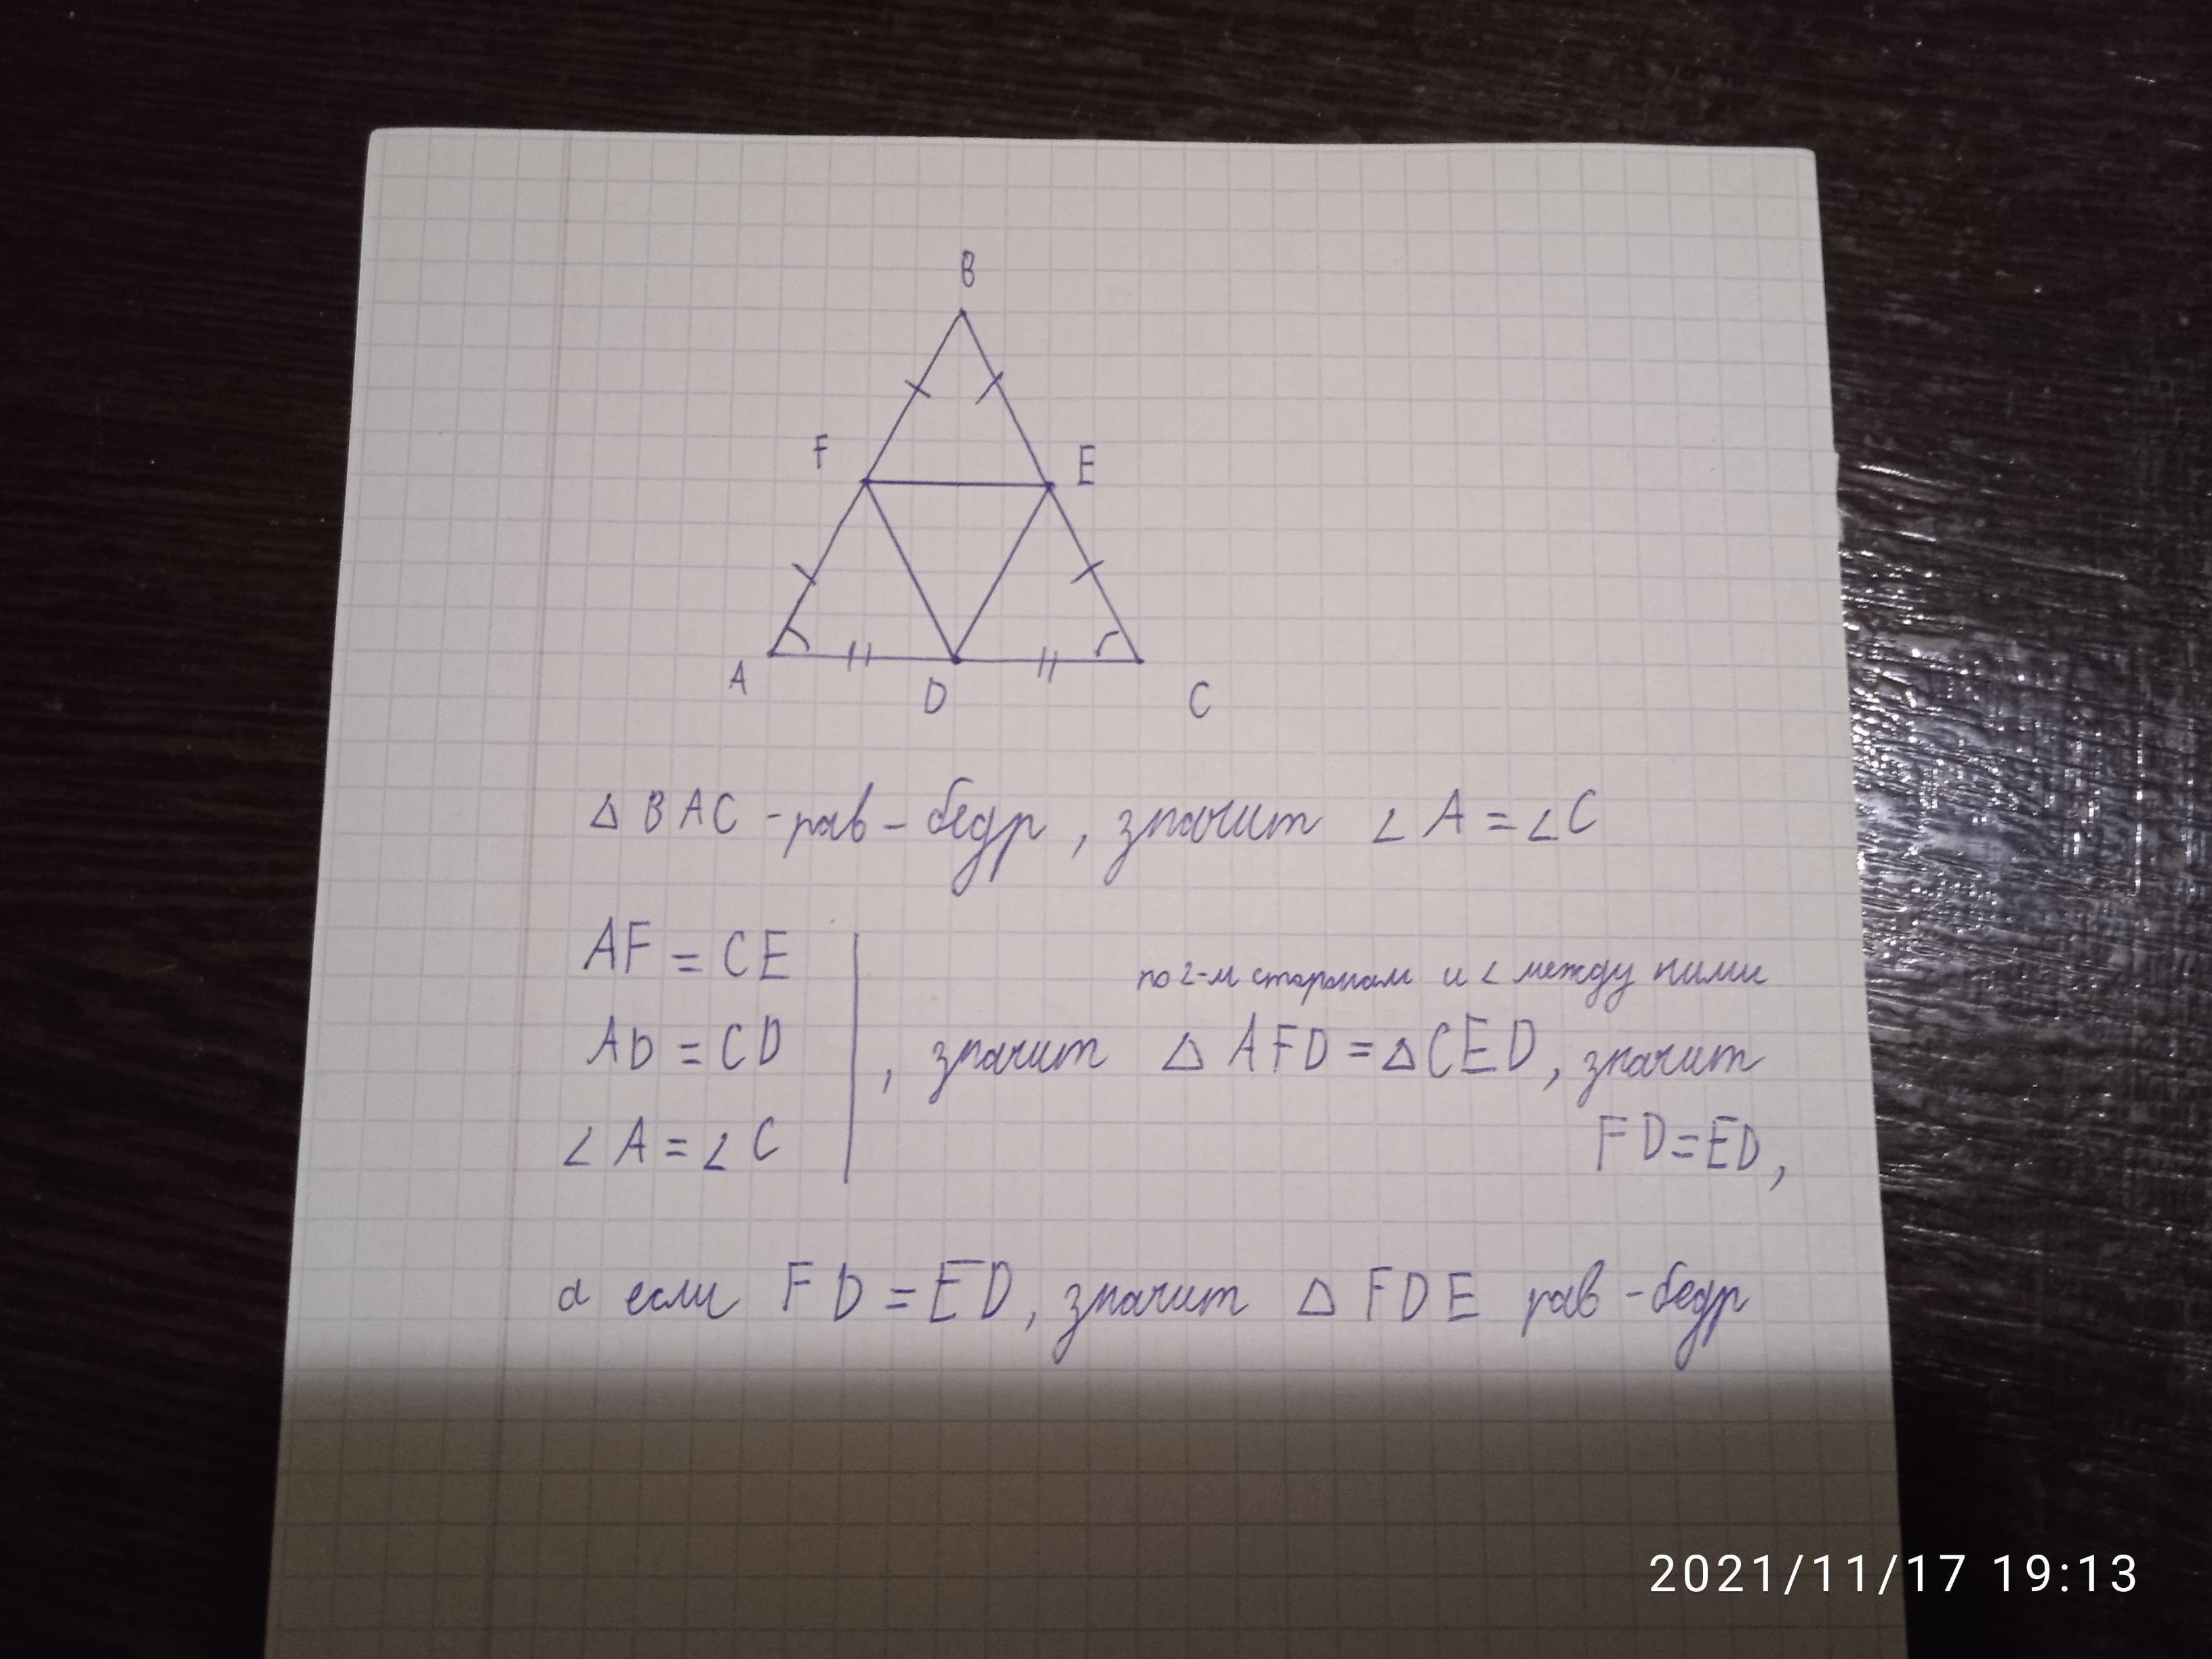 B
F
E
A
D
C
△ BAC - рав - бедр , значит ∠ A = ∠ C
AF = CE
по 2-м сторонам и ∠ между ними
AD = CD , значит △ AFD = △ CED, значит
∠ A = ∠ C
FD = ED,
а если FD = ED, значит △ FDE рав - бедр
2021/11/17 19:13